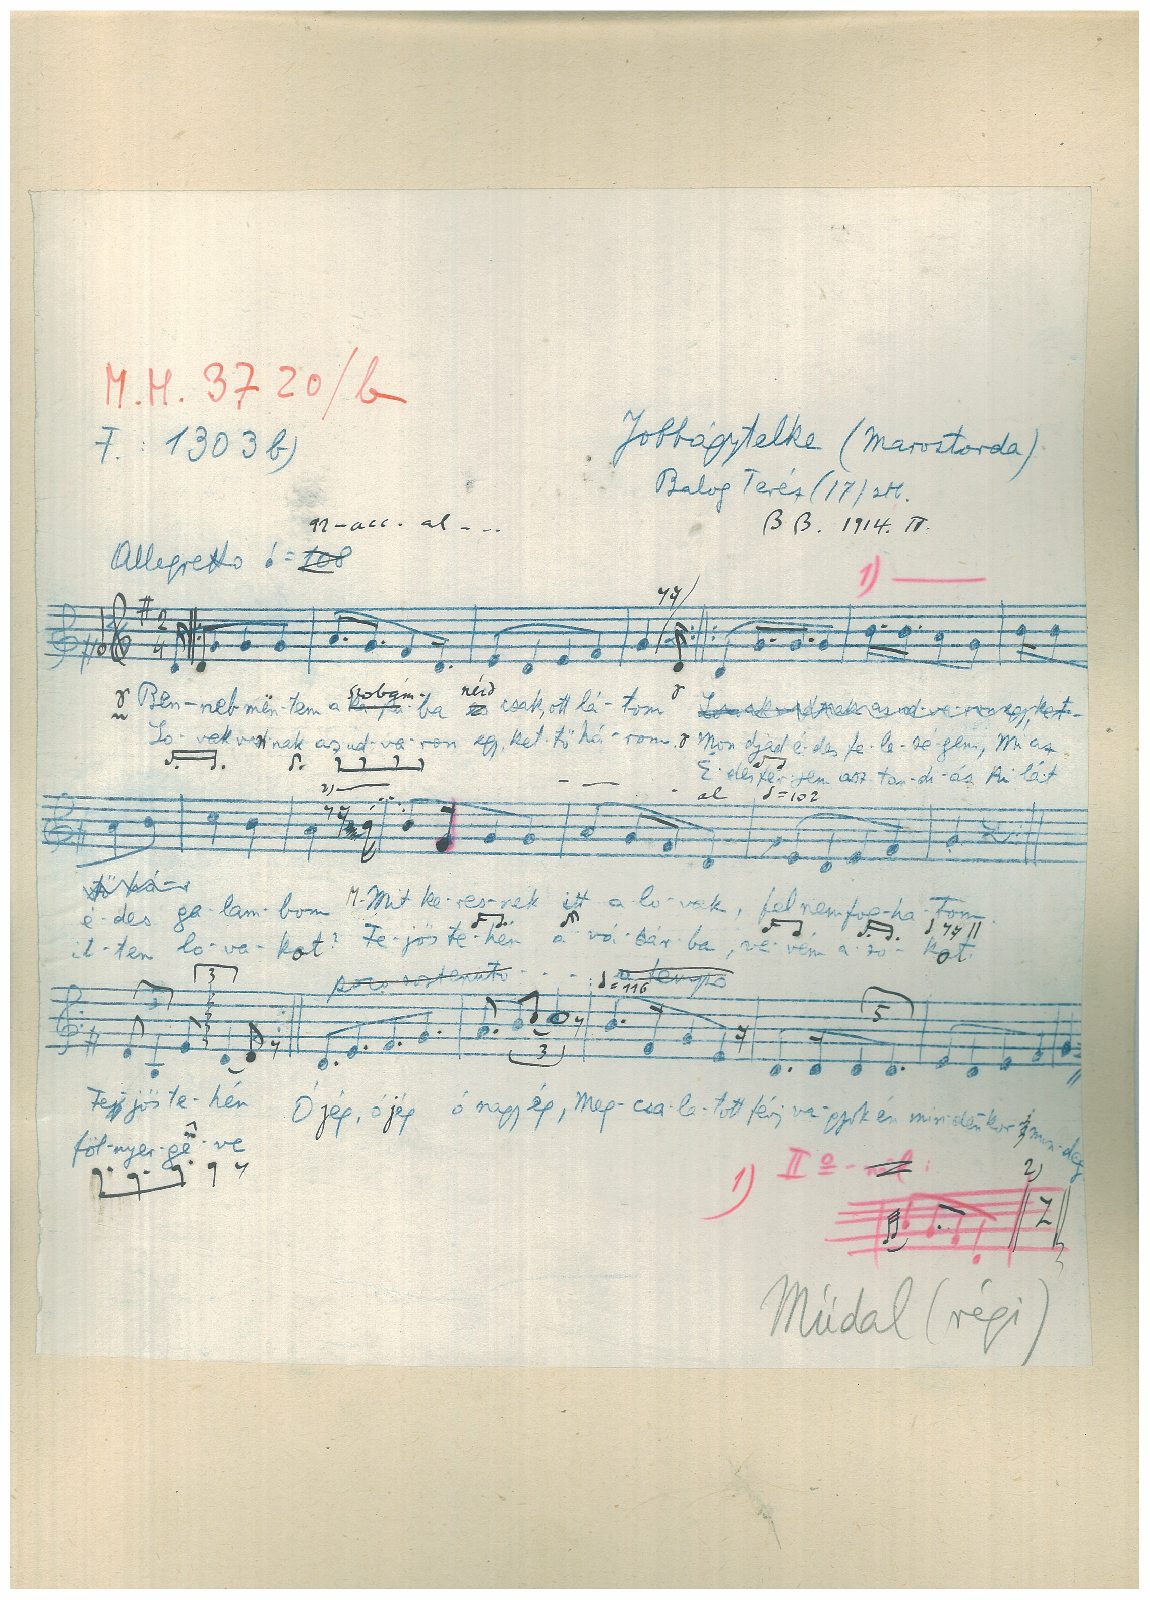 M.M. 3720/b
F.: 1303 b)
Jobbágytelke (Marostorda)
Balog Teréz (17) 
B B. 1914. IV.
al - - -
Allegretto = 108
1)
2 4
Ben-neb mën-tem a szobám- ba csak, ott lá- tom
Lo- vak vadnak az ud- va- ron egy, ket- tő há- rom. Mon djad é- des fe- le- sé- gëm, Mi az
É- des fér- jem asz ton-di-ás
al = 102
2)
é- des ga- lam- bom M- Mit ke- res- nek itt a- lo- vak, fel nem fog- ha- tom
it- ten lo- va- kat? Fe- jös te- hén a vá- sár- ba, ve- vém a- zo- kat.
poco sostenuto - - - a tempo
= 116
3 3 5
3
Fejjös te- hén Ó jép, ó jép ó nagy ég, Meg- csa- la- tott férj va- gyok én minden kor min- dég
föl- nyer- gel- ve
1) II º -nál:
2)
Müdal (régi)